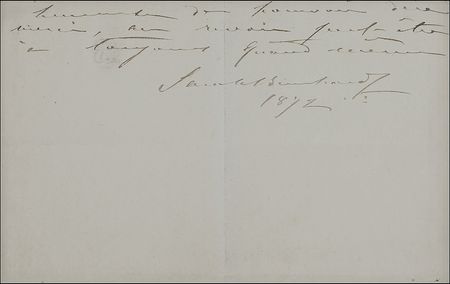 de pouvoir dire
merci, au revoir peut-être
à toujours quand même
Sarah Bernhardt
1872